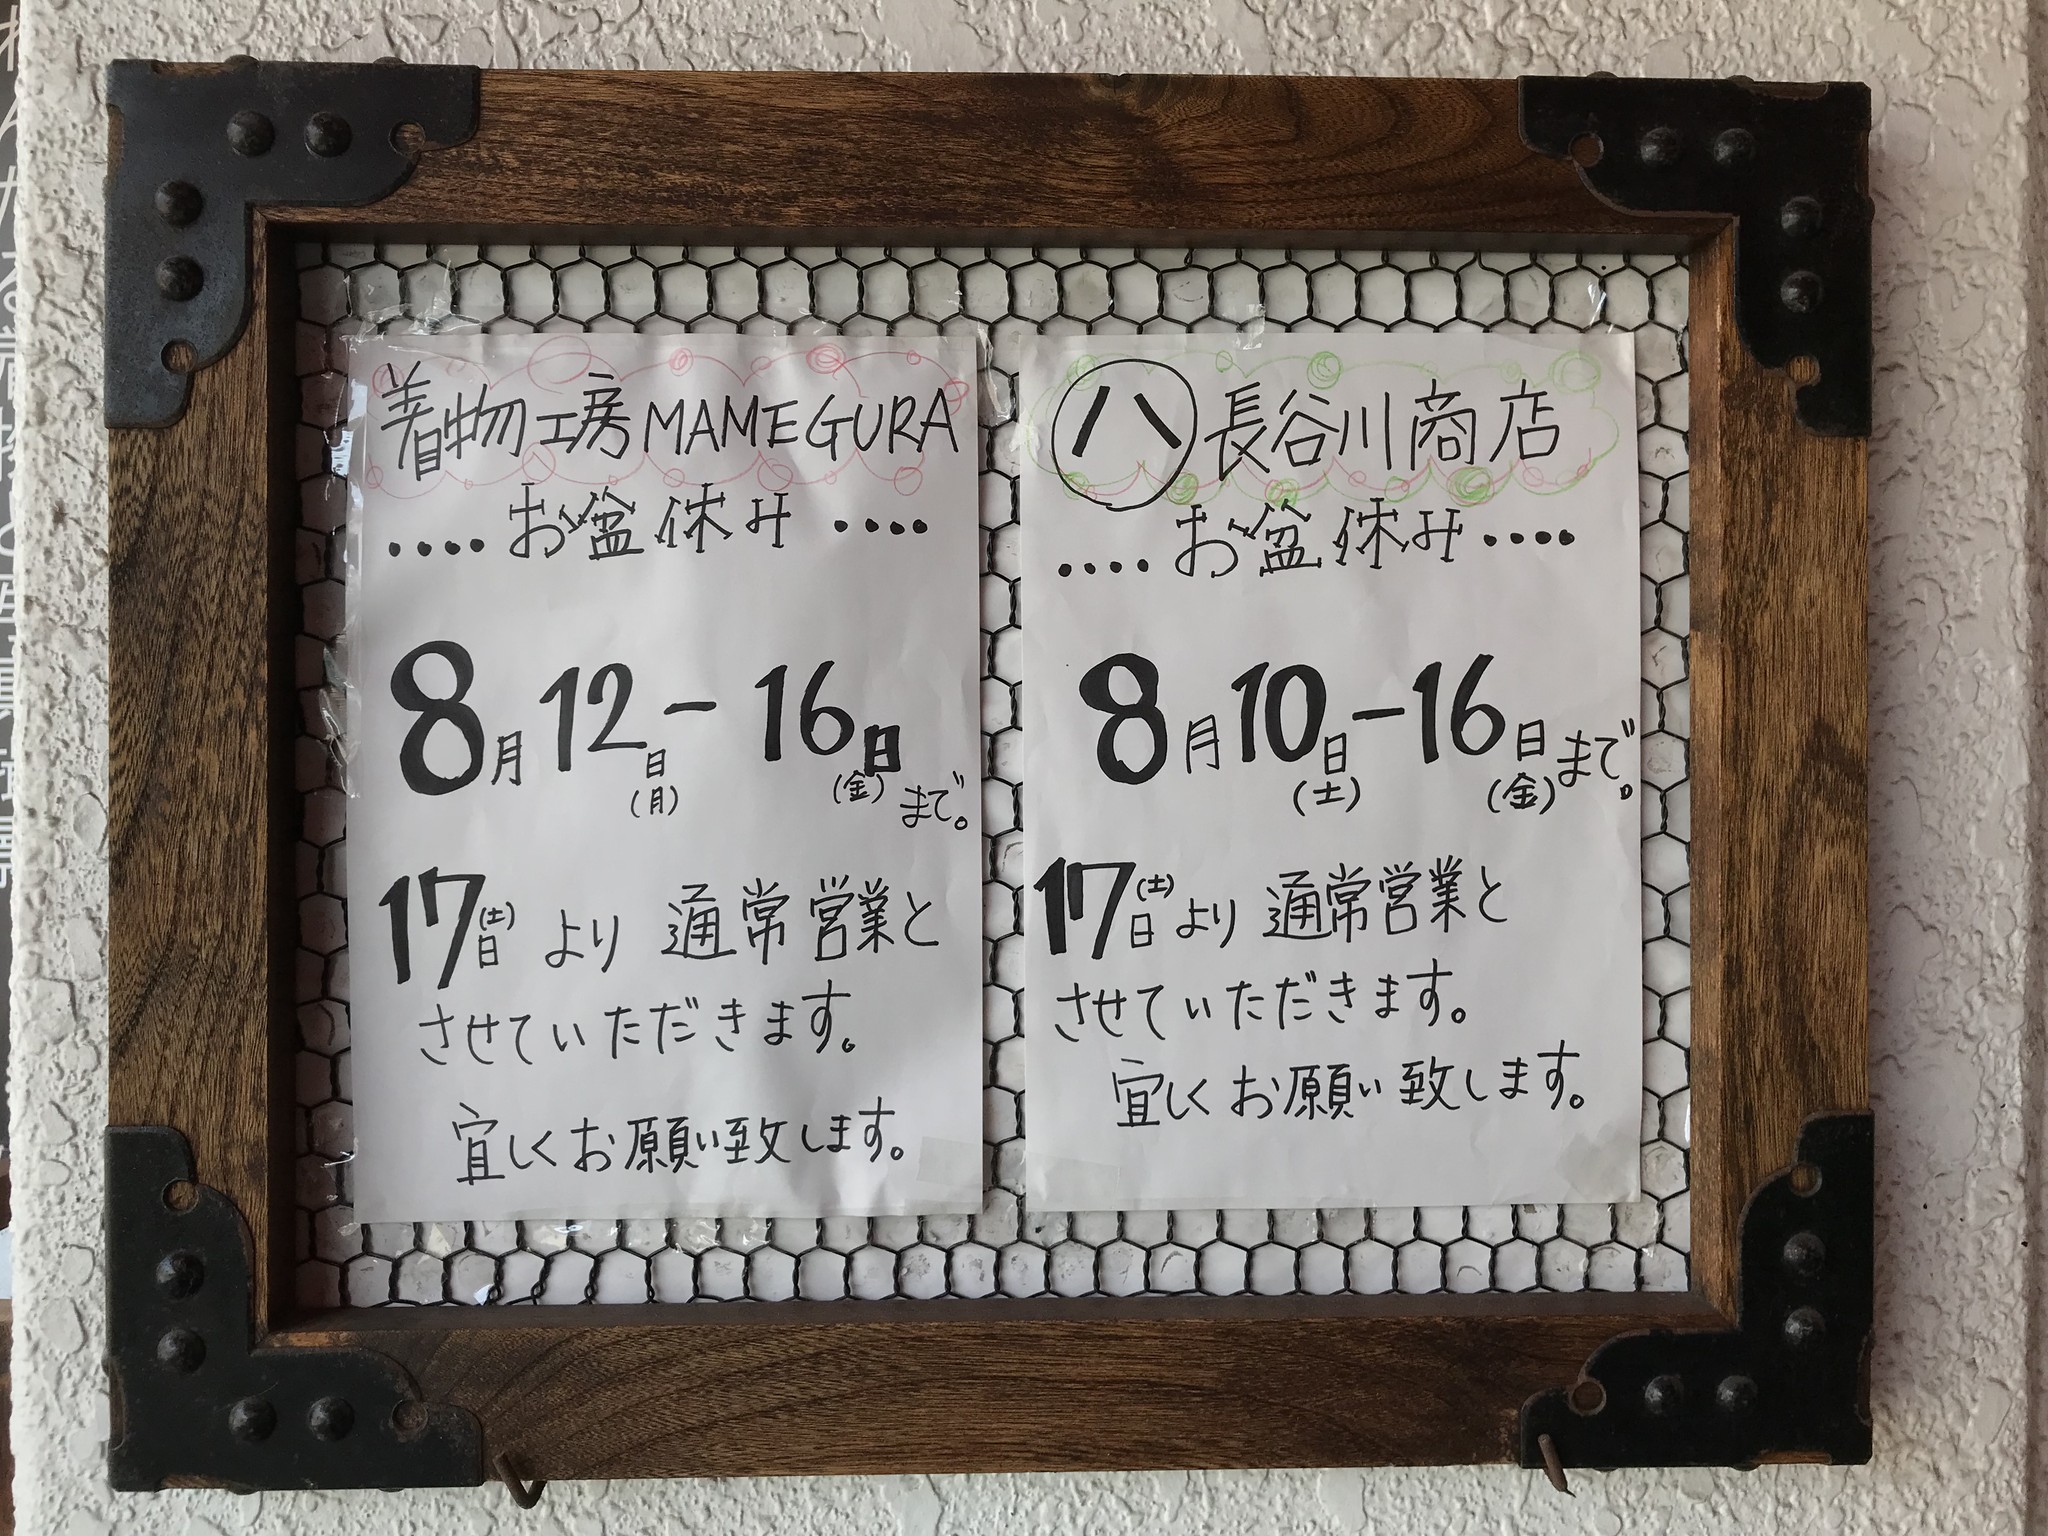 着物工房MAMEGURA
‥‥お盆休み‥‥
8月12日(月)-16日(金)まで。
17日(土)より通常営業と
させていただきます。
宜しくお願い致します。
ハ 長谷川商店
‥‥お盆休み‥‥
8月10日(土)-16日(金)まで。
17日(土)より通常営業と
させていただきます。
宜しくお願い致します。